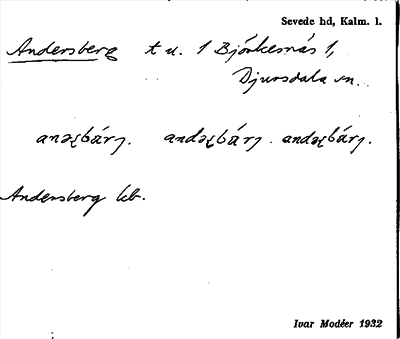 Sevede hd, Kalm. l.
Andersberg t u. 1 Björkesnäs 1,
Djursdala sn.
anəʂbárj. andəʂbárj. andəʂbárj.
Andersberg kb.
Ivar Modéer 1932